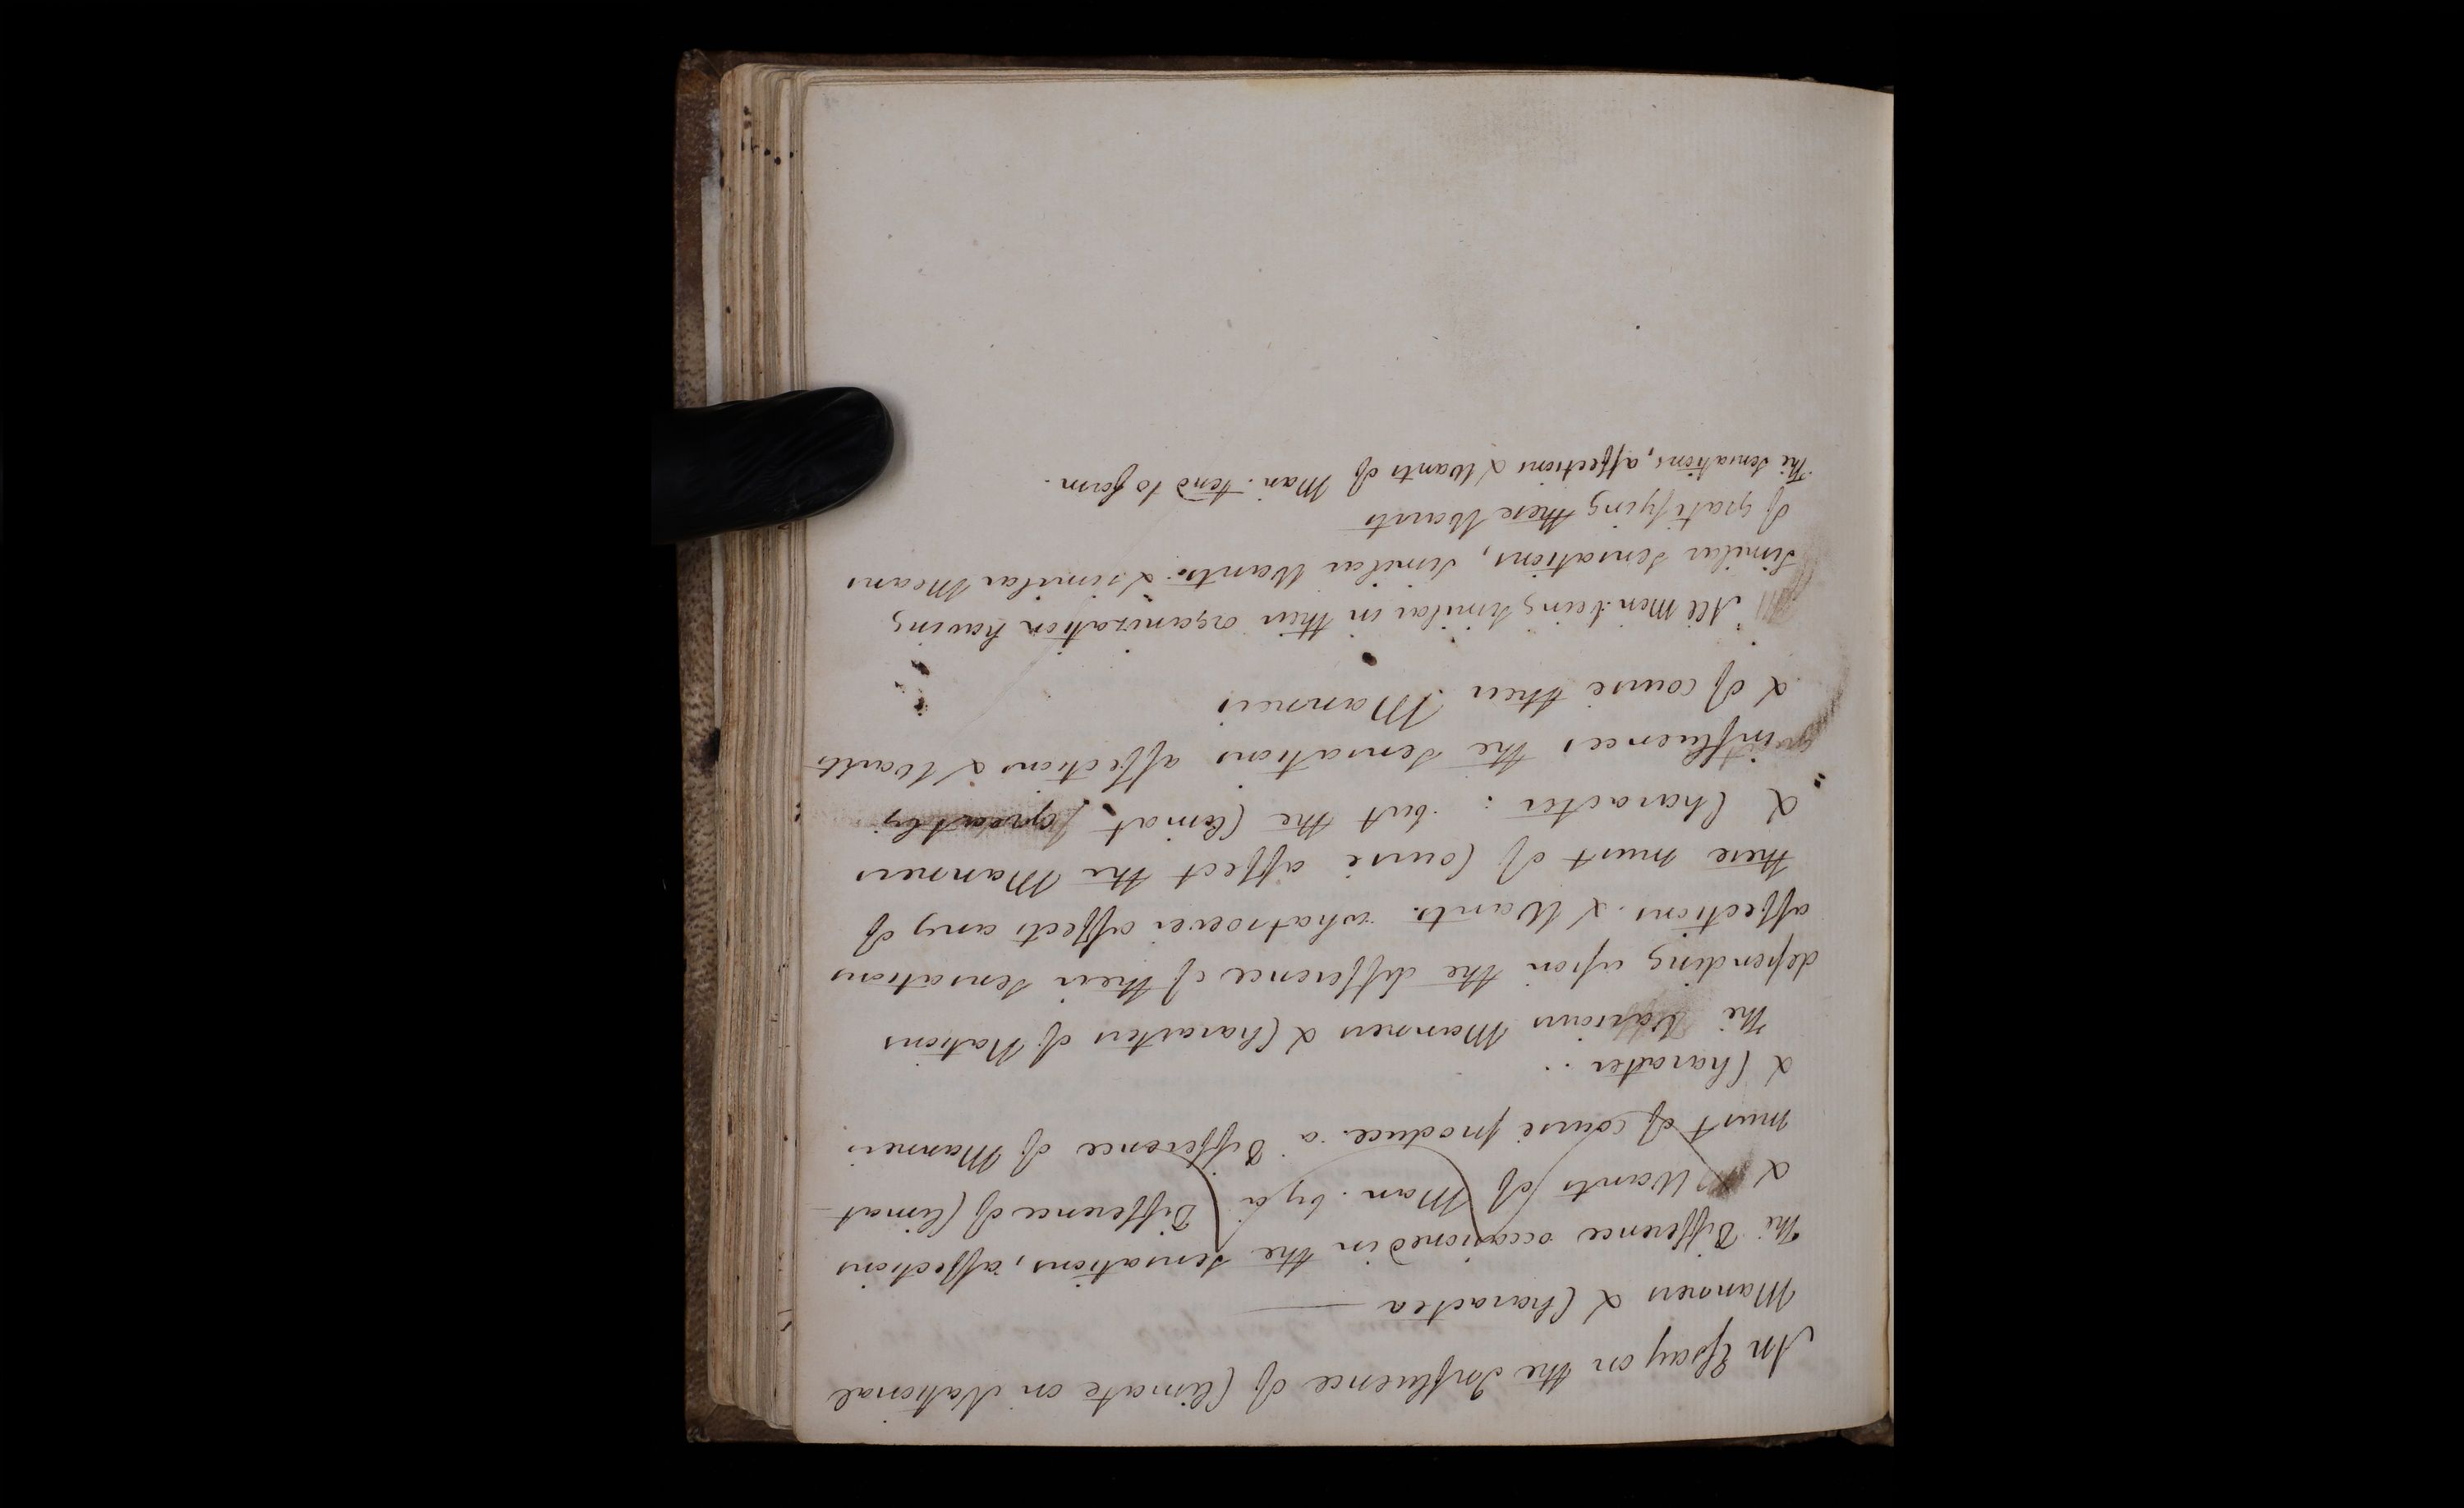 An Essay on the Influence of Climate on National
Manners & Character
The Difference occasioned in the sensations, affections
& Wants of Man. by a Difference of Climat
must of course produce a Difference of Manners
& Character.
The Various Manners & Characters of Nations
depending upon the difference of their sensations
affections & Wants. whatsoever affects any of
these must of Course affect the Manners
& Character: but the Climat greatly
influences the sensations affections & Wants
& of course their Manners
All Men being similar in their organization having
similar sensations, similar Wants. & similar Means
of gratifying these Wants
The sensations, affections & Wants of Man. tend to form.